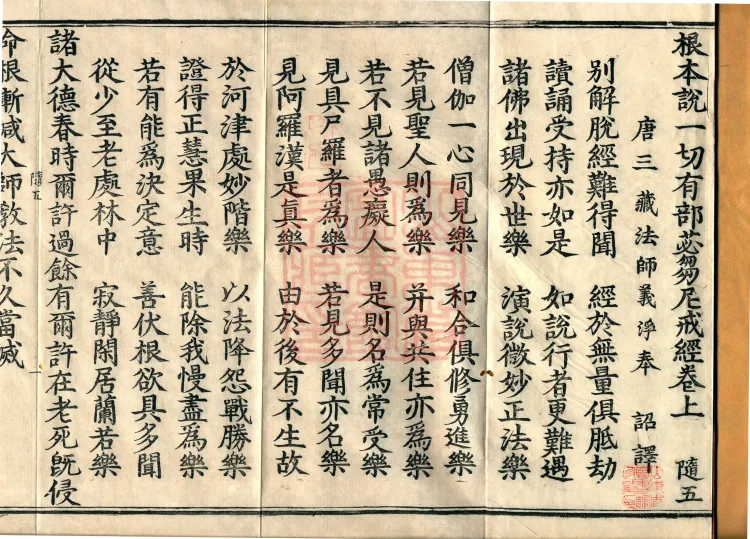 根本說一切有部苾芻尼戒經卷上　隨五
唐三藏法師義淨奉　詔譯
別解脫經難得聞　經於無量俱胝劫
讀誦受持亦如是　如說行者更難遇
諸佛出現於世樂　演說微妙正法樂
僧伽一心同見樂　和合俱修勇進樂
若見聖人則為樂　并與共住亦為樂
若不見諸愚癡人　是則名為常受樂
見具尸羅者為樂　若見多聞亦名樂
見阿羅漢是真樂　由於後有不生故
於河津處妙階樂　以法降怨戰勝樂
證得正慧果生時　能除我慢盡為樂
若有能為決定意　善伏根欲具多聞
從少至老處林中　寂靜閑居蘭若樂
諸大德春時爾許過餘有爾許在老死既侵
隨五
命根漸減大師教法不久當滅